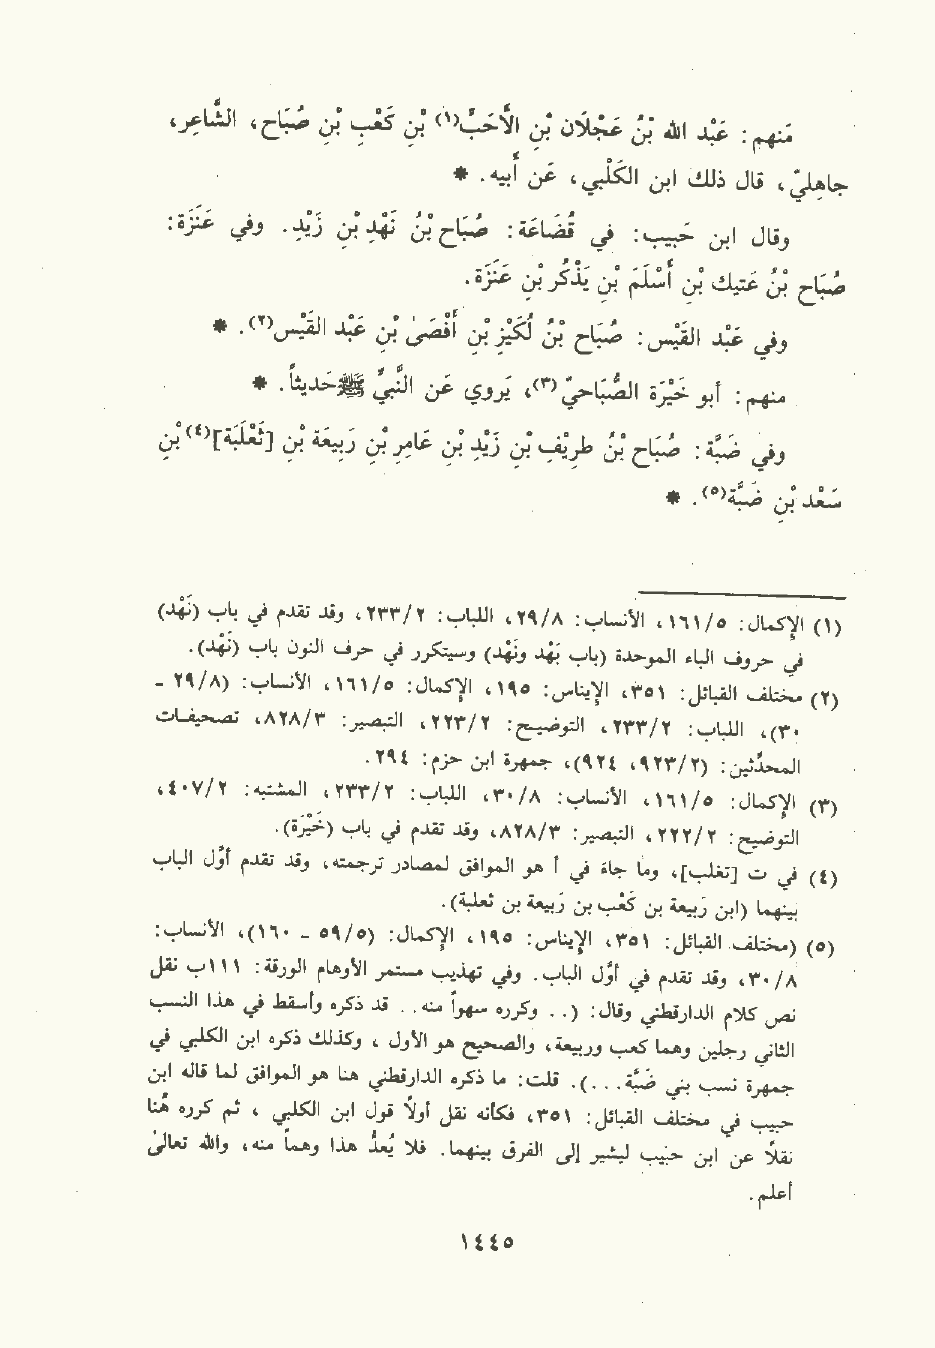 مَنهم: عَبْد الله بْنُ عَجْلَان بْنِ الأَحَبّ(١) بْنِ كَعْب بْنِ صُبَاح، الشَّاعِر،
جاهِليّ، قال ذلك ابن الكَلْبي، عَن أَبيه. *
وقال ابن حَبيب: في قُضَاعَة: صُبَاح بْنُ نَهْدِ بْنِ زَيْدِ. وفي عَنَزَة:
صُبَاح بْنُ عَتيك بْنِ أَسْلَمَ بْنِ يَذْكُر بْنِ عَنَزَة.
وفي عَبْد القَيْس: صُبَاح بْنُ لُكَيْز بْنِ أَفْصَىٰ بْنِ عَبْد القَيْس(٢). *
منهم: أبو خَيْرَة الصُّبَاحيّ(٣)، يَروي عَن النَّبيِّ ﷺ حَديثاً. *
وفي ضَبَّة: صُبَاح بْنُ طريْفِ بْنِ زَيْدِ بْنِ عَامِرِ بْنِ رَبيعَة بْنِ [ثَعْلَبَة](٤) بْنِ
سَعْد بْنِ ضَبَّة(٥). *
(١) الإكمال: ١٦١/٥، الأنساب: ٢٩/٨، اللباب: ٢٣٣/٢، وقد تقدم في باب (نَهْد)
في حروف الباء الموحدة (باب بَهْد ونَهْد) وسيتكرر في حرف النون باب (نَهْد).
(٢) مختلف القبائل: ٣٥١، الإيناس: ١٩٥، الإكمال: ١٦١/٥، الأنساب: (٢٩/٨ -
٣٠)، اللباب: ٢٣٣/٢، التوضيح: ٢٢٣/٢، التبصير: ٨٢٨/٣، تصحيفات
المحدِّثين: (٩٢٣/٢، ٩٢٤)، جمهرة ابن حزم: ٢٩٤.
(٣) الإكمال: ١٦١/٥، الأنساب: ٣٠/٨، اللباب: ٢٣٣/٢، المشتبه: ٤٠٧/٢،
التوضيح: ٢٢٢/٢، التبصير: ٨٢٨/٣، وقد تقدم في باب (خَيْرَة).
(٤) في ت [تغلب]، وما جاء في أ هو الموافق لمصادر ترجمته، وقد تقدم أوّل الباب
بينهما (ابن رَبيعة بن كَعْب بن رَبيعة بن ثعلبة).
(٥) (مختلف القبائل: ٣٥١، الإيناس: ١٩٥، الإكمال: (٥٩/٥ - ١٦٠)، الأنساب:
٣٠/٨، وقد تقدم في أوّل الباب. وفي تهذيب مستمر الأوهام الورقة: ١١١ب نقل
نص كلام الدارقطني وقال: (.. وكرره سهواً منه.. قد ذكره وأسقط في هذا النسب
الثاني رجلين وهما كعب وربيعة، والصحيح هو الأول ، وكذلك ذكره ابن الكلبي في
جمهرة نسب بني ضَبَّة...). قلت: ما ذكره الدارقطني هنا هو الموافق لما قاله ابن
حبيب في مختلف القبائل: ٣٥١، فكأنه نقل أولاً قول ابن الكلبي ، ثم كرره هُنا
نقلاً عن ابن حَبيب ليشير إلى الفرق بينهما. فلا يُعدُّ هذا وهماً منه، والله تعالىٰ
أعلم.
١٤٤٥